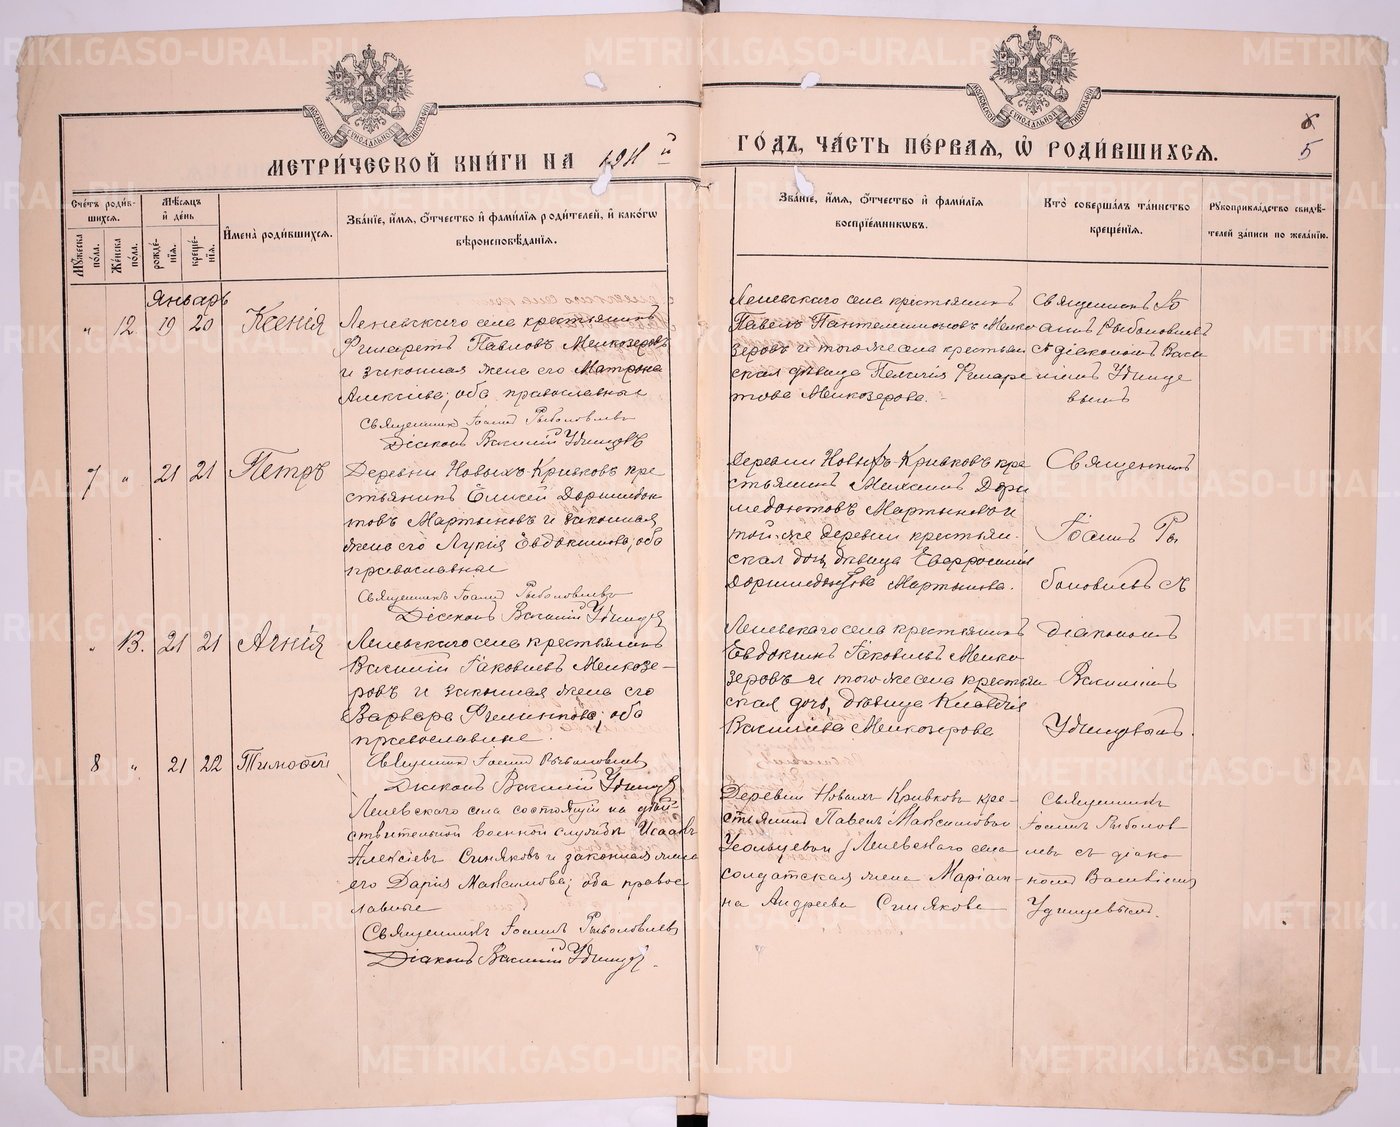 МЕТРИ́ЧЕСКОЙ КНИ́ГИ НА 1911 й
ГО́ДЪ, ЧА́СТЬ ПЕ́РВАЯ, Ѡ҆ РОДИ́ВШИХСѦ.
5
Сче́тъ роди́в-
шихся.
Мѣ́сяцъ
и҆ де́нь
Мꙋ́жеска по́ла.
Же́нска по́ла.
рожде́-
нїѧ.
креще́-
нїѧ.
И҆мена̀ роди́вшихсѧ.
Зва́нїе, и҆́мѧ, ѻ҆́тчество и҆ фами́лїѧ роди́телей, и҆ како́гѡ
вѣроисповѣ́данїѧ.
Зва́нїе, и҆́мѧ, ѻ҆́тчество и҆ фами́лїѧ
воспрїе́мниковъ.
Кто̀ соверша́лъ та́инство
креще́нїѧ.
Рꙋкоприкла́дство свидѣ́-
телей за́писи по жела́нїю.
Январь
" 12 19 20 Ксенія
Леневскаго села крестьянинъ
Филаретъ Павловъ Мелкозеровъ
и законная жена его Матрона
Алексіева; оба православные
Священникъ Іоаннъ Рыболовлевъ
Діаконъ Василій Удинцевъ
Леневскаго села крестьянинъ
Павелъ Пантелимоновъ Мелко
зеровъ и того же села крестьян
ская дѣвица Пелагія Филаре
това Мелкозерова.
Священникъ Іо
аннъ Рыболовлевъ
съ діакономъ Васи
ліемъ Удинце
вымъ
7 " 21 21 Петръ
Деревни Новыхъ-Кривковъ кре
стьянинъ Елисей Доримедон
товъ Мартыновъ и законная
жена его Лукія Евдокимова; оба
православные
Священникъ Іоаннъ Рыболовлевъ
Діаконъ Василій Удинцев
Деревни Новыхъ-Кривковъ кре
стьянинъ Михаилъ Дори
медонтовъ Мартыновъ и
той-же деревни крестьян-
ская дочь, дѣвица Евфросинія
Доримедонтова Мартынова.
Священникъ
Іоаннъ Ры
боловлевъ съ
" 13. 21 21 Агнія
Леневскаго села крестьянинъ
Василій Іаковлевъ Мелкозе-
ровъ и законная жена его
Варвара Филиппова; оба
православные.
Священникъ Іоаннъ Рыболовлевъ
Діаконъ Василій Удинцев
Леневскаго села крестьянинъ
Евдокимъ Іаковлевъ Мелко
зеровъ и того же села крестьян
ская дочь, дѣвица Клавдія
Васильева Мелкозерова
діакономъ
Василіемъ
Удинцевымъ.
8 " 21 22 Тимофей
Леневскаго села состоящій на дѣй-
ствительной военной службѣ Исаакъ
Алексіевъ Синяковъ и законная жена
его Дарія Максимова; оба правос
лавные
Священникъ Іоаннъ Рыболовлевъ
Діаконъ Василій Удинцев.
Деревни Новыхъ Кривковъ кре-
стьянинъ Павелъ Максимовъ
Усольцевъ и Леневскаго села
солдатская жена Маріам-
на Андреева Синякова
Священникъ
Іоаннъ Рыболов
левъ съ діако-
номъ Василіемъ
Удинцевымъ.
METRIKI.GASO-URAL.RU